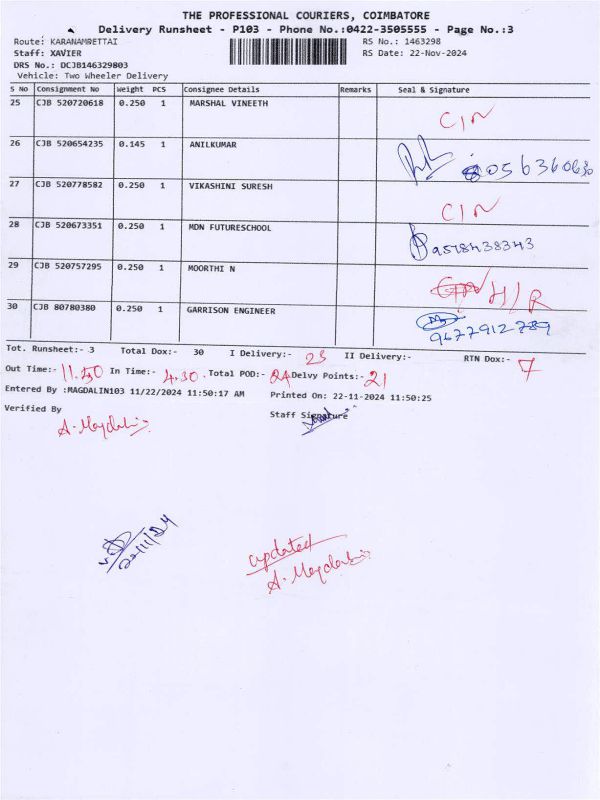 THE PROFESSIONAL COURIERS, COIMBATORE
Delivery Runsheet - P103 - Phone No.:0422-3505555 - Page No.:3
Route: KARANAMRETTAI RS No.: 1463298
Staff: XAVIER RS Date: 22-Nov-2024
DRS No.: DCJB146329803
Vehicle: Two Wheeler Delivery
S No Consignment No Weight PCS Consignee Details Remarks Seal & Signature
25 CJB 520720618 0.250 1 MARSHAL VINEETH CIN
26 CJB 520654235 0.145 1 ANILKUMAR
27 CJB 520778582 0.250 1 VIKASHINI SURESH CIN
28 CJB 520673351 0.250 1 MDN FUTURESCHOOL 9578438343
29 CJB 520757295 0.250 1 MOORTHI N H/R
30 CJB 80780380 0.250 1 GARRISON ENGINEER 9677912789
Tot. Runsheet:- 3 Total Dox:- 30 I Delivery:- 23 II Delivery:- RTN Dox:- 7
Out Time:- 11.50 In Time:- 4.30 Total POD:- 24 Delvy Points:- 21
Entered By :MAGDALIN103 11/22/2024 11:50:17 AM Printed On: 22-11-2024 11:50:25
Verified By Staff Signature
A. Magdalin
22/11/24
updated
A. Magdalin